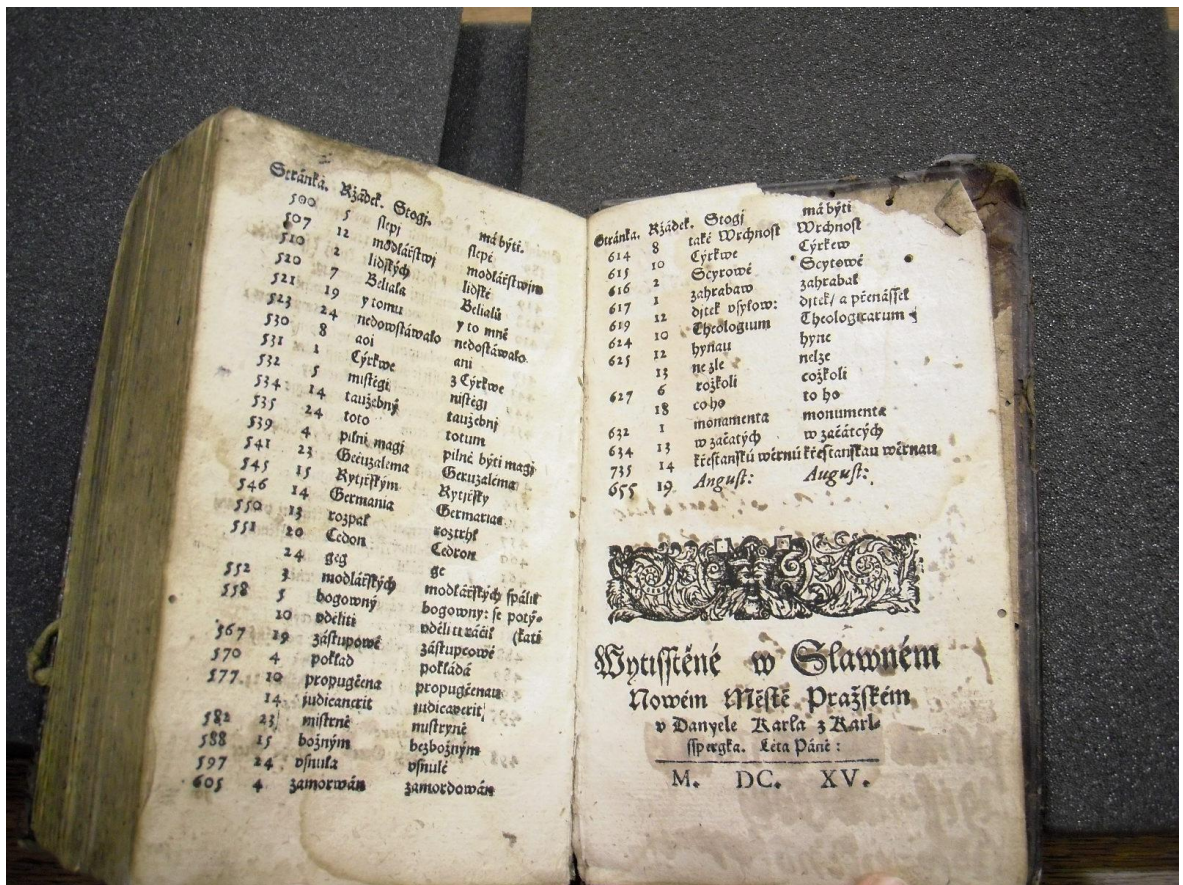 Stránka. Ržádek. Stogj. má býti.
500 5 slepj slepé
507 12 modlářstwj modlářstwjm
510 2 lidských lidské
520 7 Beliala Belialů
521 19 y tomu y to mně
523 24 nedowstáwalo nedostáwalo.
530 8 aoi ani
531 1 Cýrkwe z Cýrkwe
532 5 mistěgi nistěgi
534 14 taužebný taužebnj
535 24 toto totum
539 4 pilni magi pilni býti magj
541 23 Gecuzalema Geruzaléma
545 15 Rytjřským Rytjřsky
546 14 Germania Germanias
550 13 rozpal roztrhl
551 20 Cedon Cedron
24 geg ge
552 3 modlářských modlářských spálil
558 5 bogowný bogowny: se potý-
10 vděliti vděliti ráčil (kati
567 19 zástupowé zástupcowé
570 4 poklad pokládá
577 10 propugčena propugčenau
14 judicanerit judicaverit
582 23 mistrně mistryně
588 15 božným bezbožným
597 24 vsnula vsnulé
605 4 zamorwán zamordowán
Stránka. Ržádek. Stogj má býti
614 8 také Wrchnost Wrchnost
615 10 Cýrkwe Cýrkew
616 2 Scyrowé Scytowé
617 1 zahrabaw zahrabal
619 12 djtek vsylow: djtek/ a přenássek
624 10 Theologium Theologicarum
625 12 hynau hyne
13 nezle nelze
627 6 rožkoli cožkoli
18 coho to ho
632 1 monamenta monumenta
634 13 w začatých w začátcých
735 14 křestanskú wěrnú křestanskau wěrnau
655 19 Angust: August:
Wytisstěné w Slawném
Nowém Městě Pražském
v Danyele Karla z Karl-
sspergka. Léta Páně:
M. DC. XV.